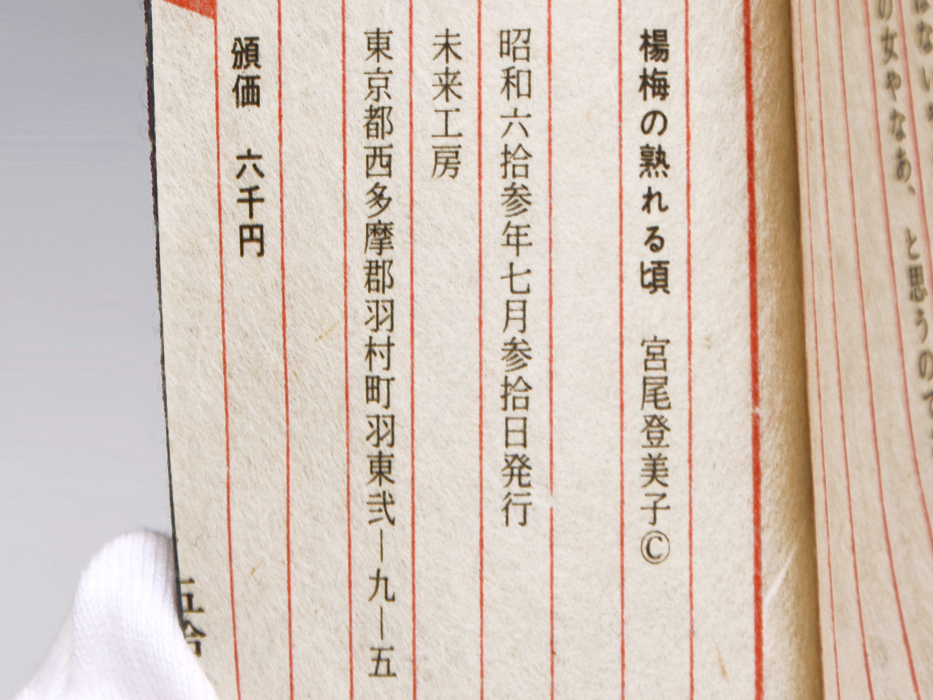 の女やなあ、と思うので
楊梅の熟れる頃　宮尾登美子©
昭和六拾参年七月参拾日発行
未来工房
東京都西多摩郡羽村町羽東弐ー九ー五
頒価　六千円